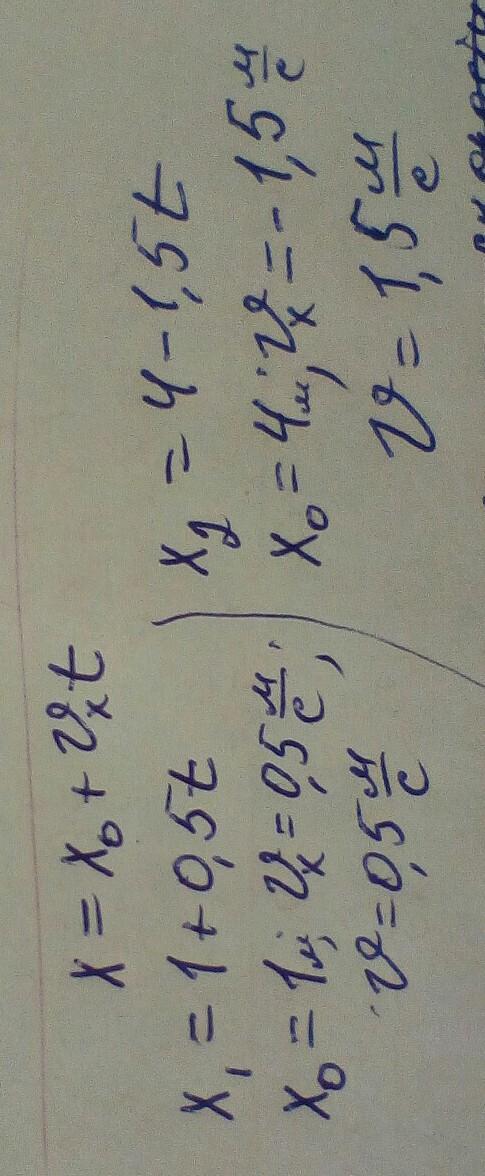 x = x₀ + υₓt
x₁ = 1 + 0,5t
x₀ = 1м; υₓ = 0,5 м/с;
υ = 0,5 м/с
x₂ = 4 - 1,5t
x₀ = 4м; υₓ = -1,5 м/с
υ = 1,5 м/с